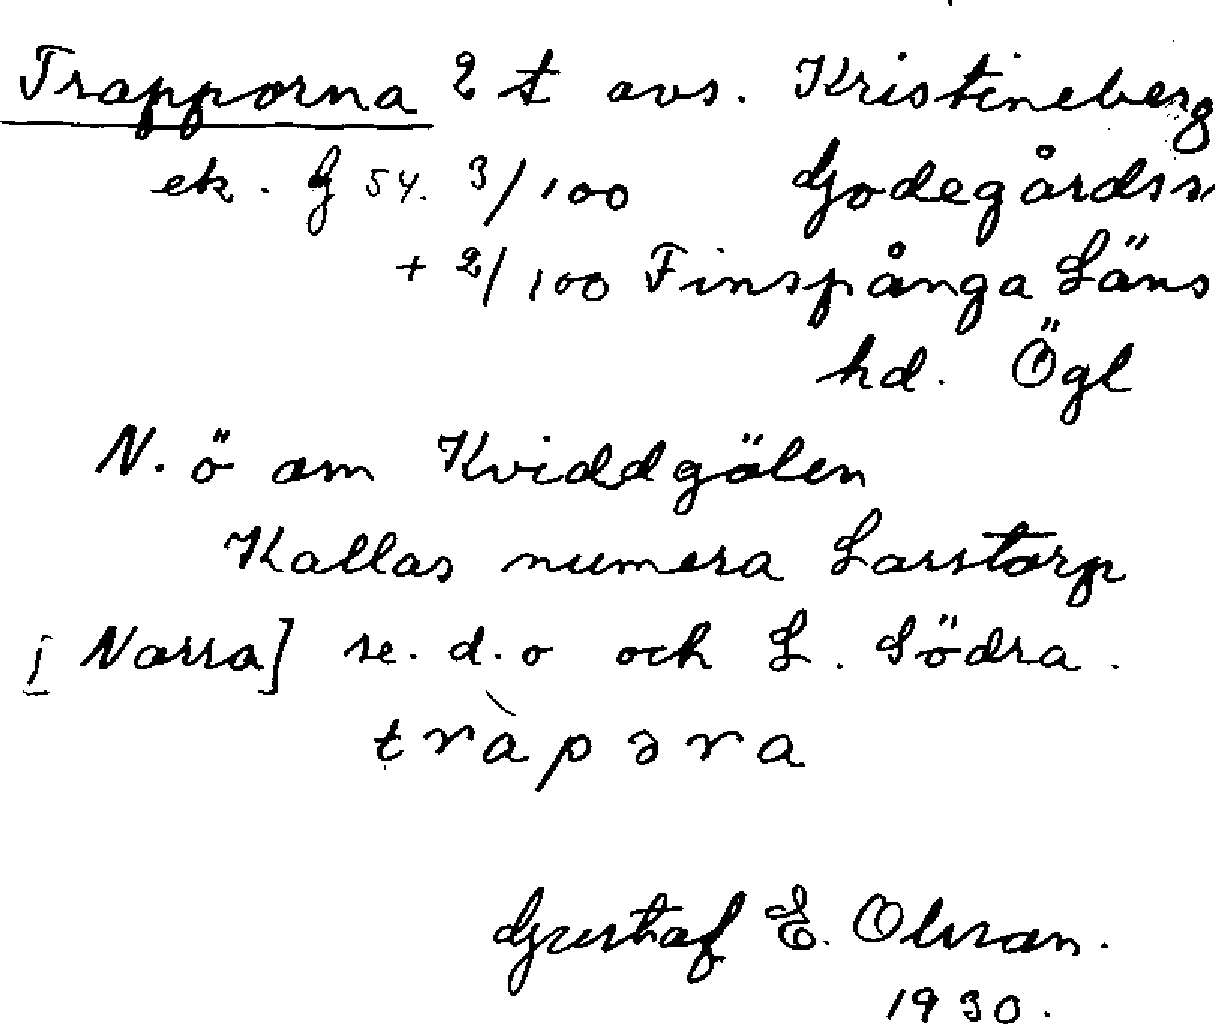 Trapporna 2 t avs. Kristineberg
ek. G 54. 3/100 Godegårds s
+ 2/100 Finspånga Läns
hd. Ögl
N. ö om Kviddgölen
Kallas numera Larstorp
[Norra] se. d. o och L. Södra.
tràpəra
Gustaf E. Olsson.
1930.